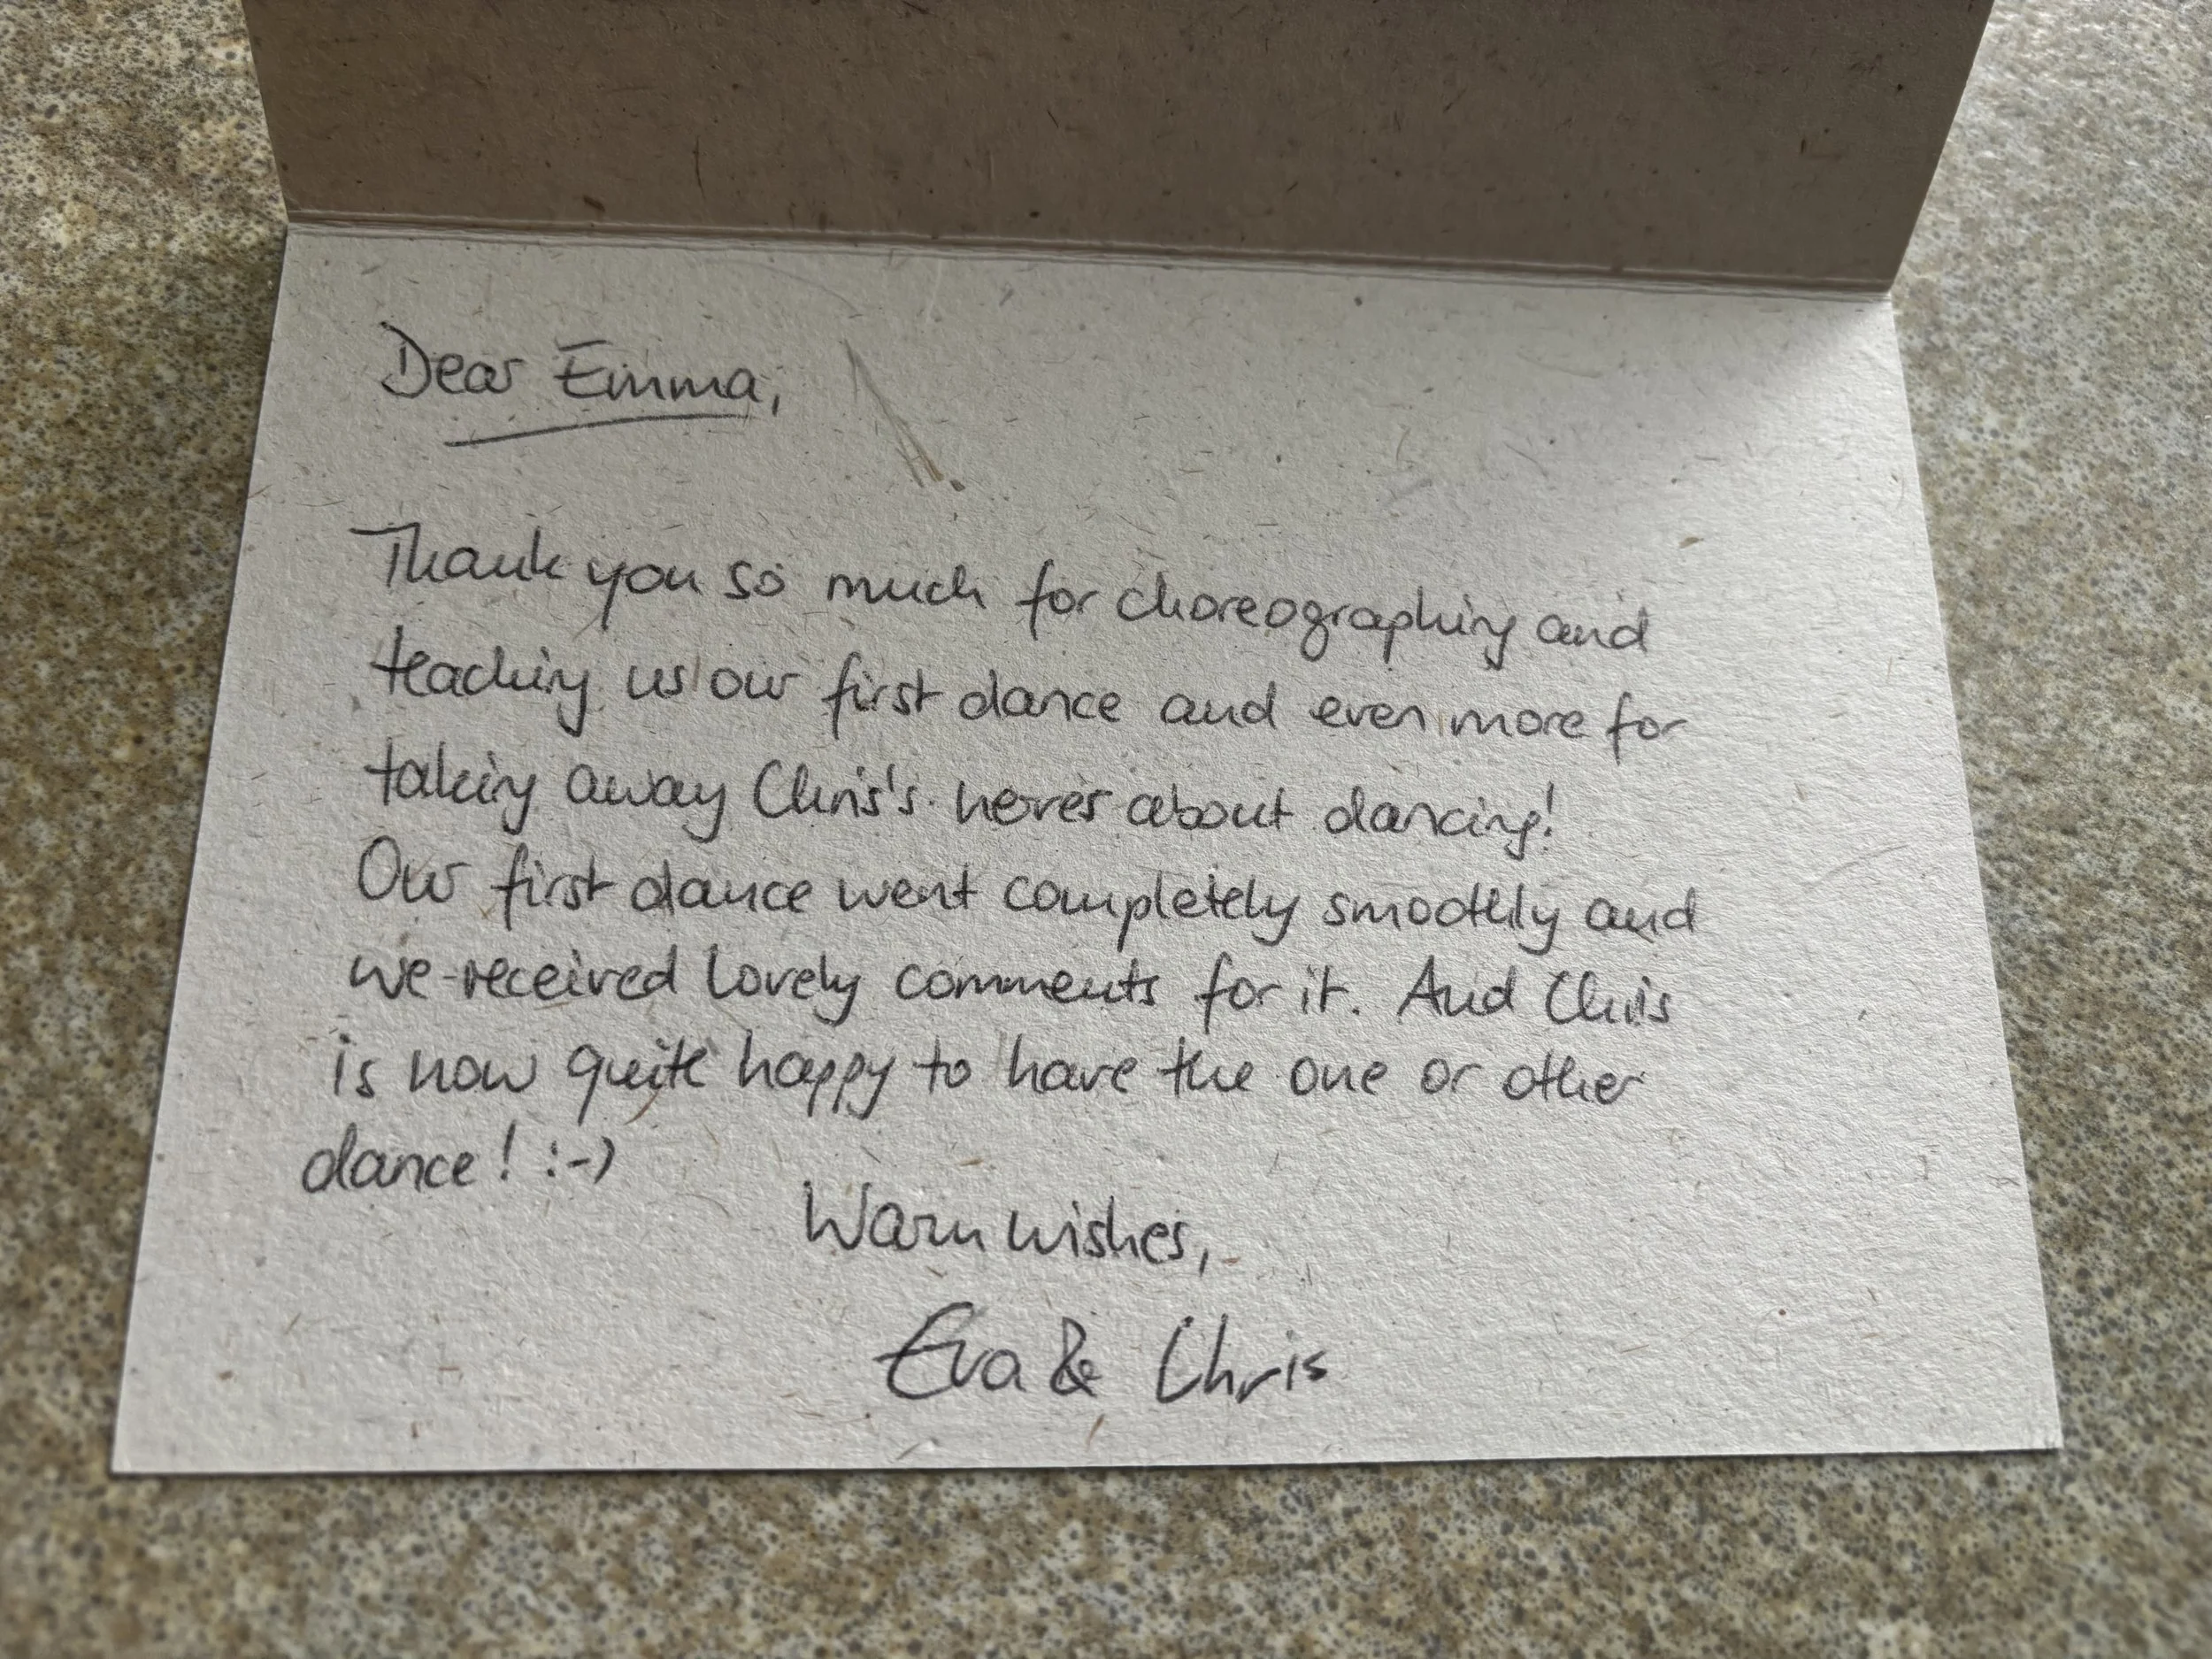 Dear Emma,
Thank you so much for choreographing and
teaching us our first dance and even more for
taking away Chris's nerves about dancing!
Our first dance went completely smoothly and
we received lovely comments for it. And Chris
is now quite happy to have the one or other
dance! :-)
Warm wishes,
Eva & Chris